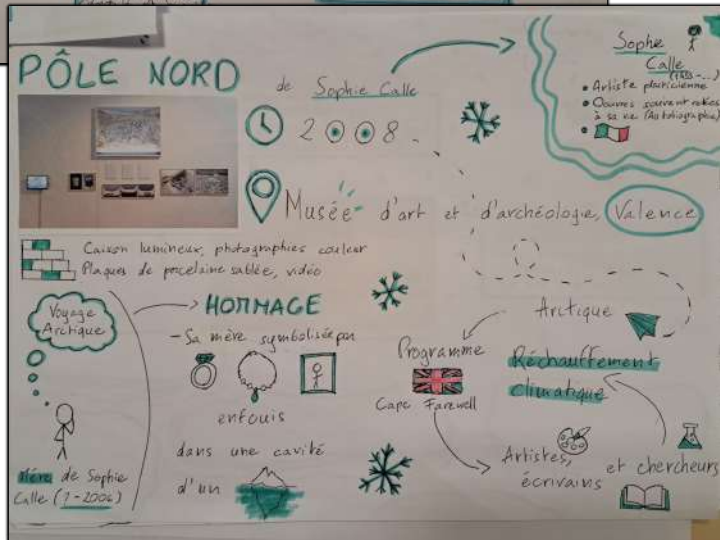 PÔLE NORD
de Sophie Calle
2008
Musée d'art et d'archéologie, Valence
Sophie
Calle
(1953-...)
• Artiste plasticienne
• Oeuvres souvent reliées
à sa vie (Autobiographie)
Caisson lumineux, photographies couleur
Plaques de porcelaine sablée, vidéo
Voyage
Arctique
Mère de Sophie
Calle (?-2006)
HOMMAGE
- Sa mère symbolisée par
enfouis
dans une cavité
d'un
Arctique
Programme
Cape Farewell
Réchauffement
climatique
Artistes,
écrivains
et chercheurs